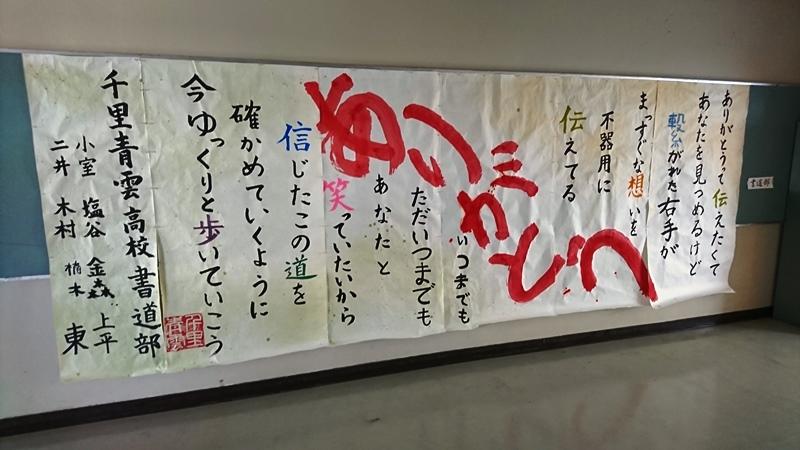 ありがとうって伝えたくて
あなたを見つめるけど
繋がれた右手が
まっすぐな想いを
不器用に
伝えてる
ありがとう
いつまでも
ただいつまでも
あなたと
笑っていたいから
信じたこの道を
確かめていくように
今ゆっくりと歩いていこう
千里青雲高校書道部
小室 塩谷 金森 上平
二井 木村 楠木 東
千里青雲
書道部